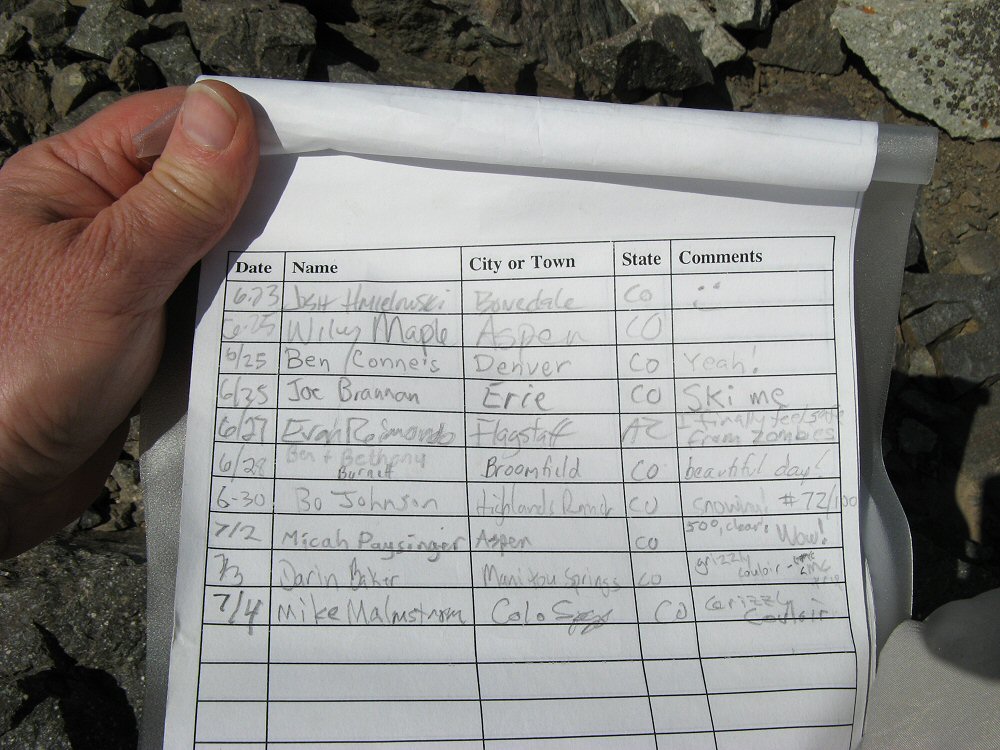 Date Name City or Town State Comments
6.23 Josh Hmielowski CO :)
6.25 Wiley Maple Aspen CO
6/25 Ben Conners Denver CO Yeah!
6/25 Joe Brannan Erie CO Ski me
6/27 Evan Raimondo Flagstaff AZ I finally feel safe
from zombies
6/28 Ben + Bethany
Burnett Broomfield CO beautiful day!
6-30 Bo Johnson Highlands Ranch CO snowin! #72/100
7/2 Micah Paysinger Aspen CO 500, clear! Wow!
7/3 Darin Baker Manitou Springs CO grizzly
couloir -
7/4 Mike Malmstrom Colo Spgs CO Grizzly
Couloir